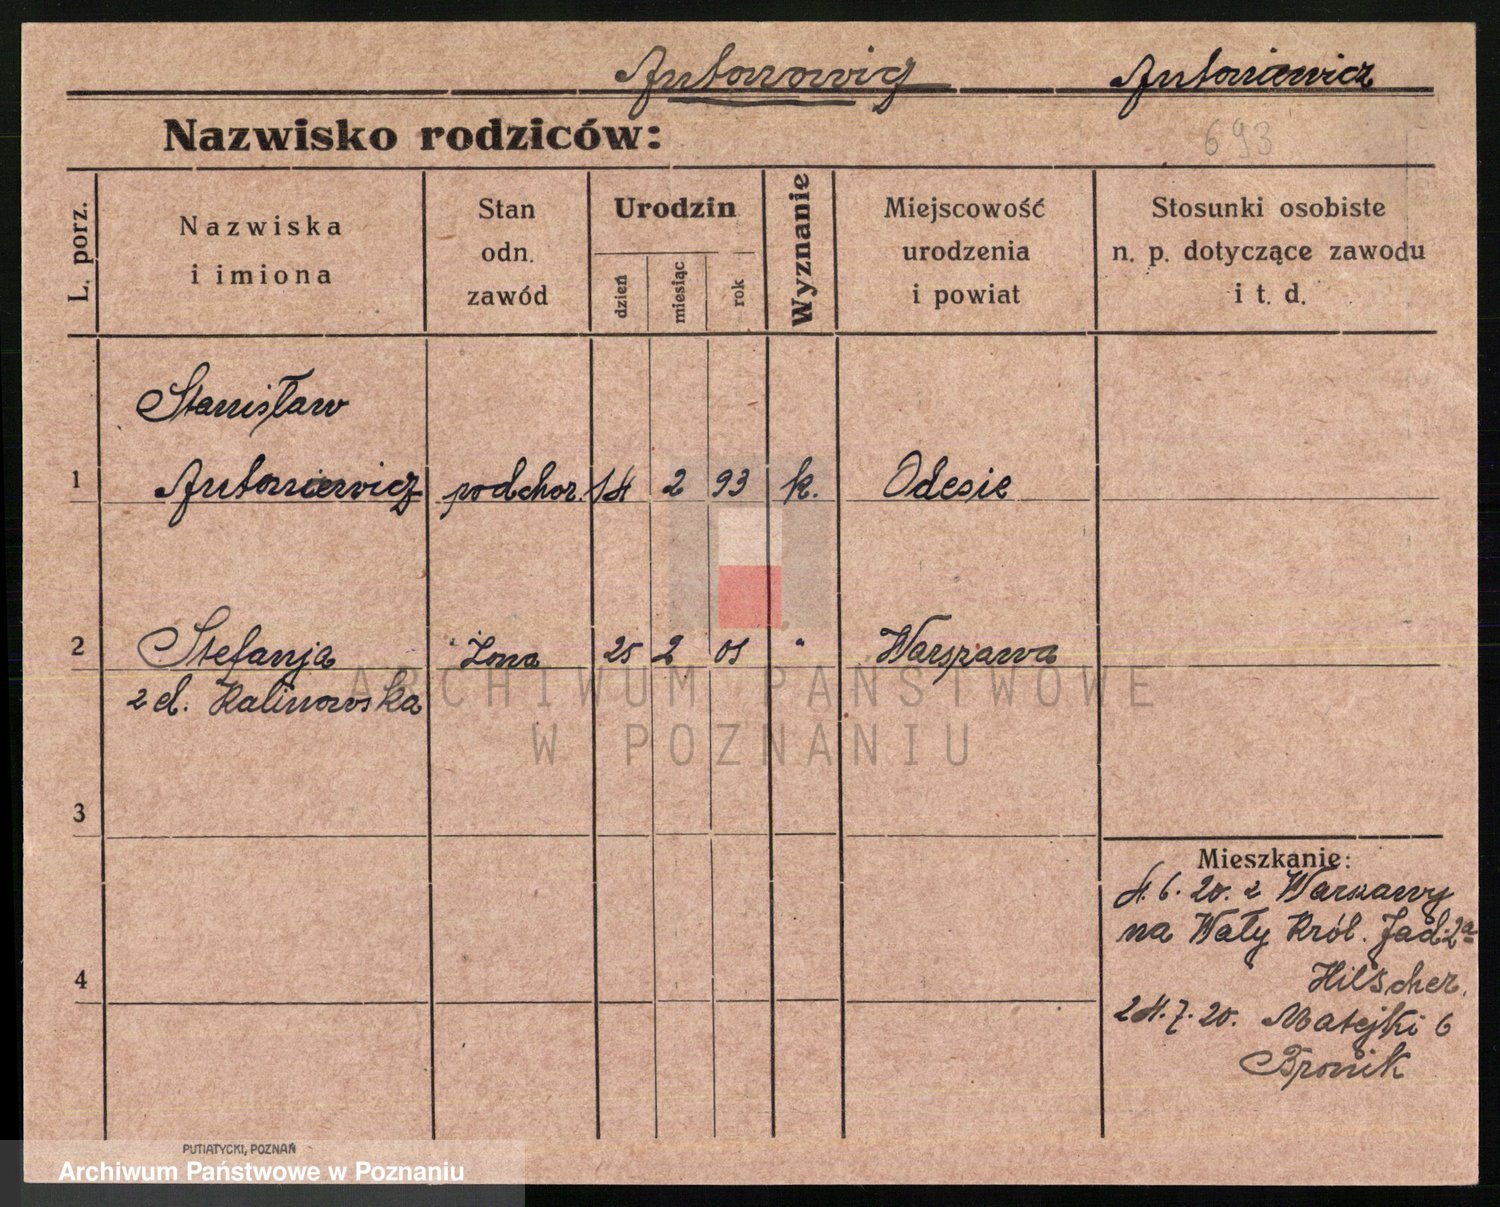 Antonowicz Antoniewicz
Nazwisko rodziców:
693
L. porz.
Nazwiska
i imiona
Stan
odn.
zawód
Urodzin
dzień
miesiąc
rok
Wyznanie
Miejscowość
urodzenia
i powiat
Stosunki osobiste
n. p. dotyczące zawodu
i t. d.
Stanisław
1 Antoniewicz podchor. 14 2 93 k. Odesie
2 Stefanja żona 25 2 01 " Warszawa
z d. Kalinowska
ARCHIWUM PAŃSTWOWE
W POZNANIU
3
Mieszkanie:
4.6.20. z Warszawy
na Wały Król. Jad. 2a
4
Hilscher.
24.7.20. Matejki 6
Bronik
PUTIATYCKI, POZNAŃ
Archiwum Państwowe w Poznaniu